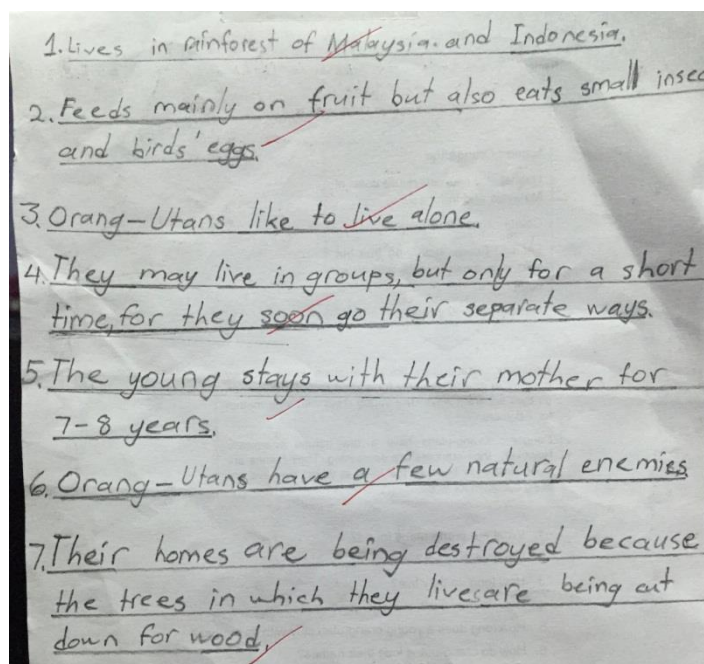 1. Lives in rainforest of Malaysia. and Indonesia.
2. Feeds mainly on fruit but also eats small insec
and birds' eggs.
3. Orang-Utans like to live alone.
4. They may live in groups, but only for a short
time, for they soon go their separate ways.
5. The young stays with their mother for
7-8 years.
6. Orang-Utans have a few natural enemies
7. Their homes are being destroyed because
the trees in which they lives are being cut
down for wood.